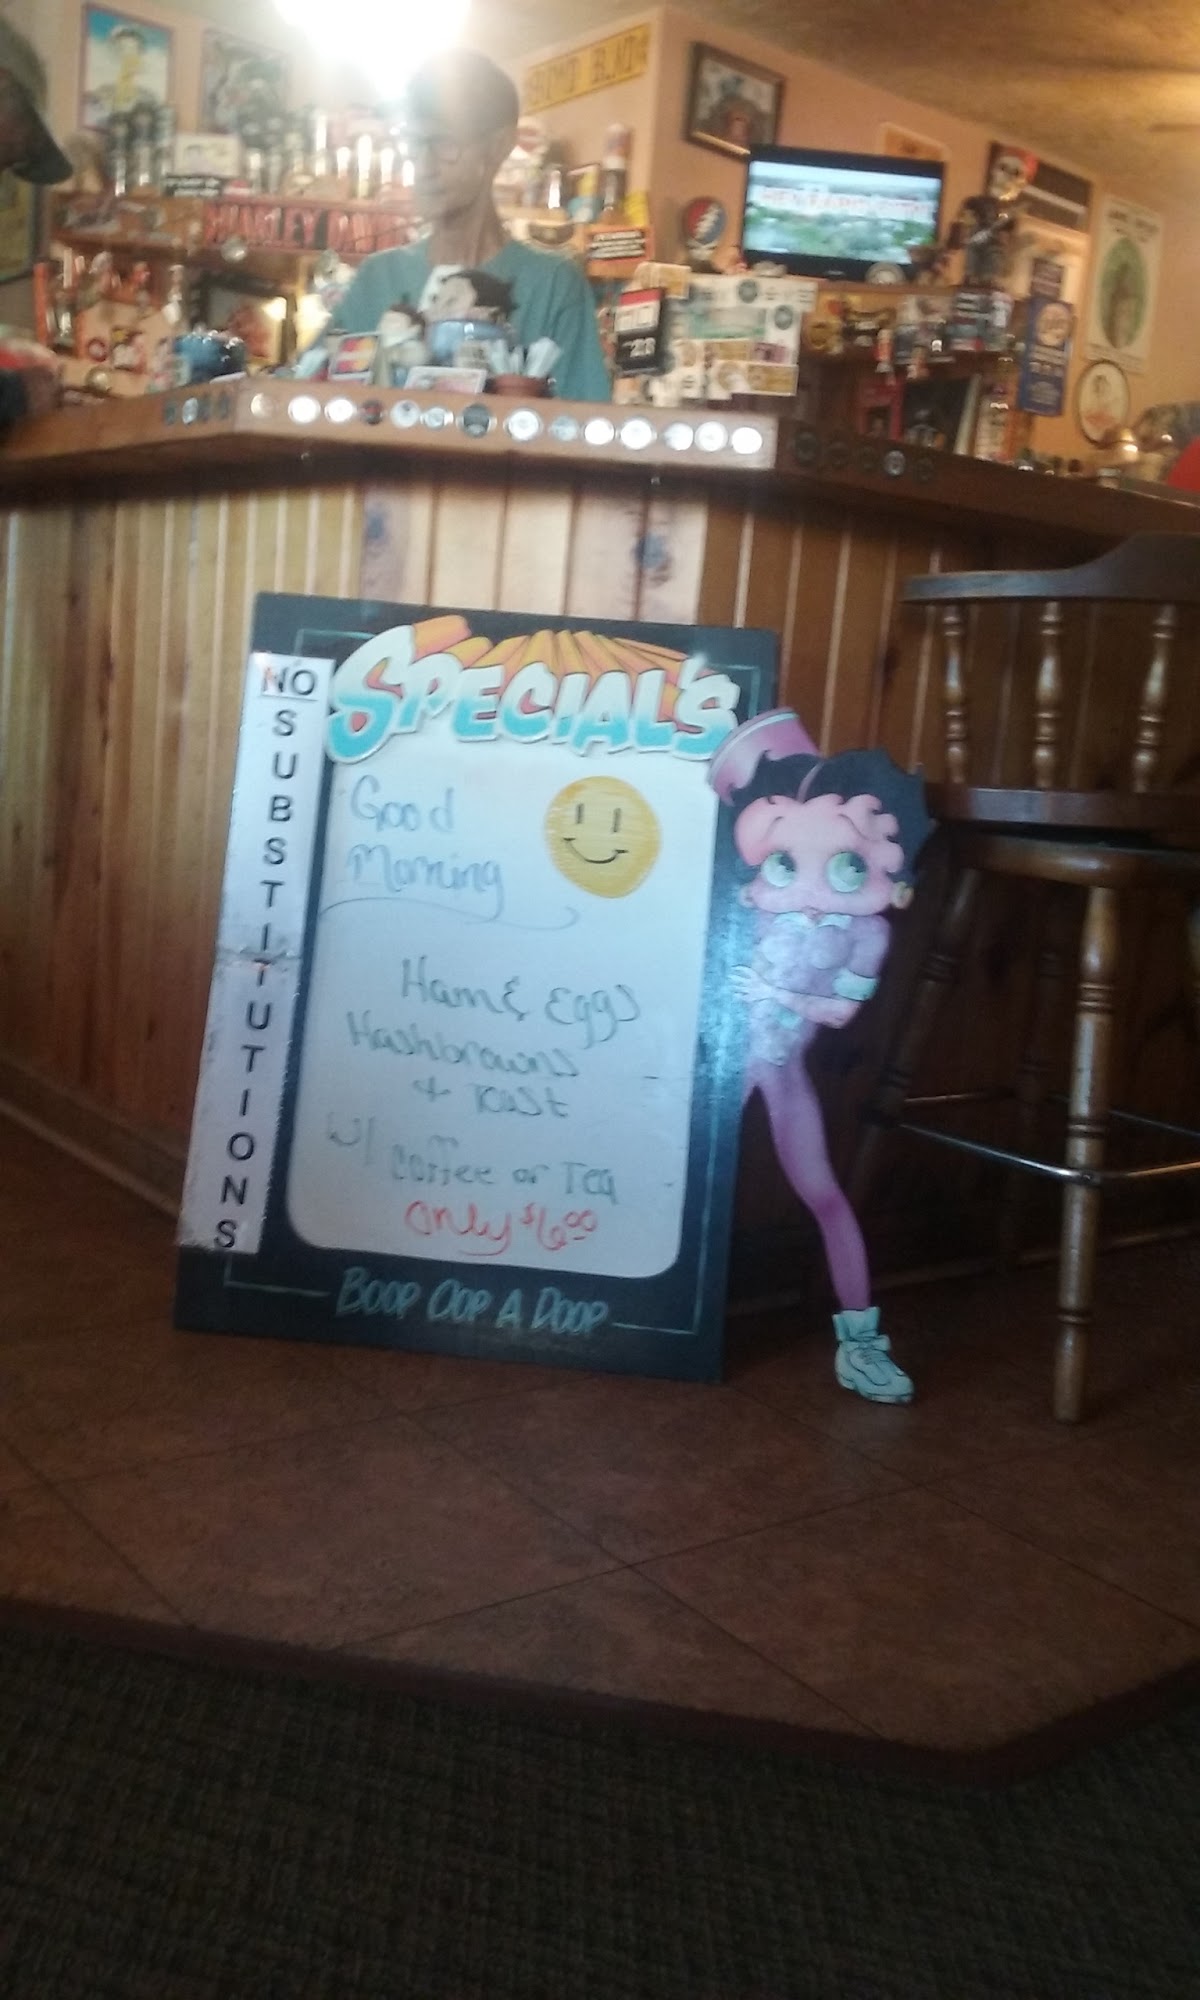 HARLEY DAVI
23
NO
SUBSTITUTIONS
SPECIAL'S
Good
Morning
Ham & Eggs
Hashbrowns
+ Toast
w/ Coffee or Tea
Only $6.00
BOOP OOP A DOOP